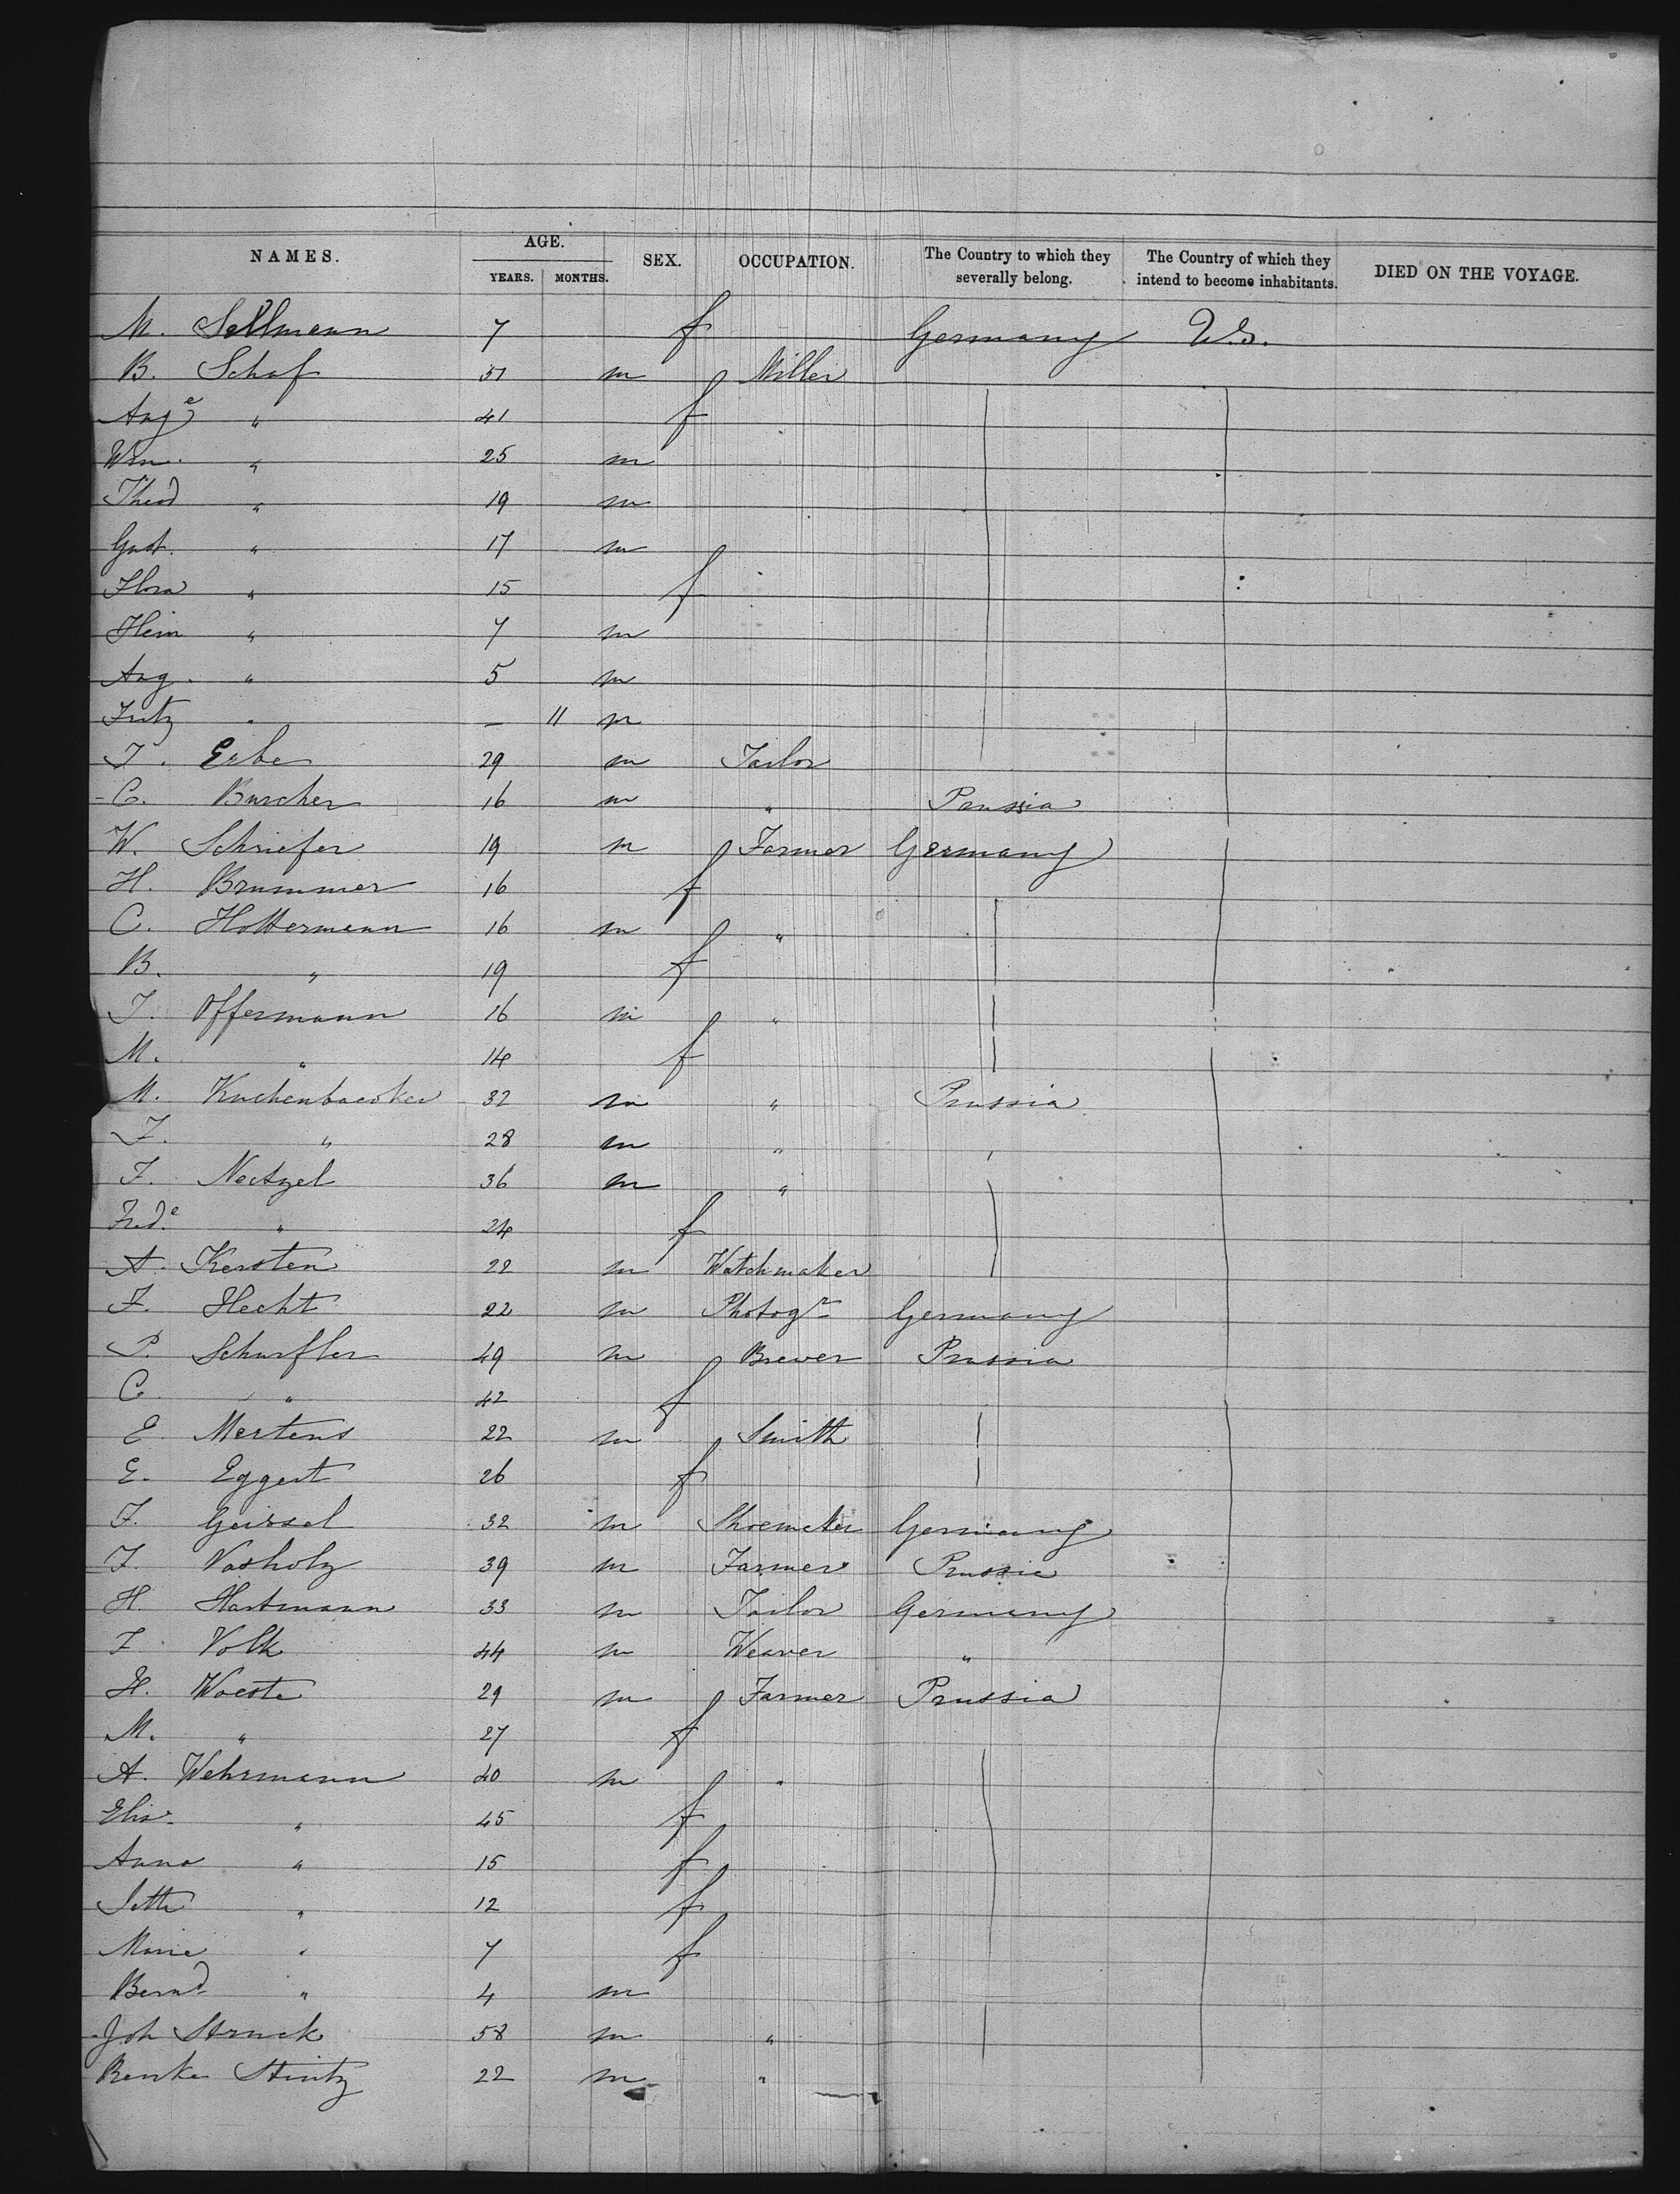 NAMES. AGE. YEARS. MONTHS. SEX. OCCUPATION. The Country to which they severally belong. The Country of which they intend to become inhabitants. DIED ON THE VOYAGE.
M. Sellmann 7 f Germany U.S.
B. Schaf 51 m Miller
Auge " 41 f
Wm. " 25 m
Theod " 19 m
Gust. " 17 m
Flora " 15 f
Hein " 7 m
Aug. " 5 m
Fritz " — 11 m
J. Erbe 29 m Tailor
C. Burcher 16 m " Prussia
W. Schriefer 19 m Farmer Germany
H. Brummer 16 f
C. Holtermann 16 m "
B. " 19 f
J. Offermann 16 m "
M. " 14 f
M. Kuchenbaecker 32 m " Prussia
F. " 28 m "
F. Neitzel 36 m "
Frede " 24 f
A. Kersten 22 m Watchmaker
F. Hecht 22 m Photogr Germany
P. Schurfler 49 m Brewer Prussia
C. " 42 f
E. Mertens 22 m Smith
E. Eggert 26 f
F. Geissel 32 m Shoemaker Germany
F. Vosholz 39 m Farmer Prussia
H. Hartmann 33 m Tailor Germany
F. Volk 44 m Weaver "
H. Woeste 29 m Farmer Prussia
M. " 27 f
A. Wehrmann 40 m "
Elis. " 45 f
Anna " 15 f
Jette " 12 f
Marie " 7 f
Bernd " 4 m
Joh Struck 58 m "
Renke Stintz 22 m "